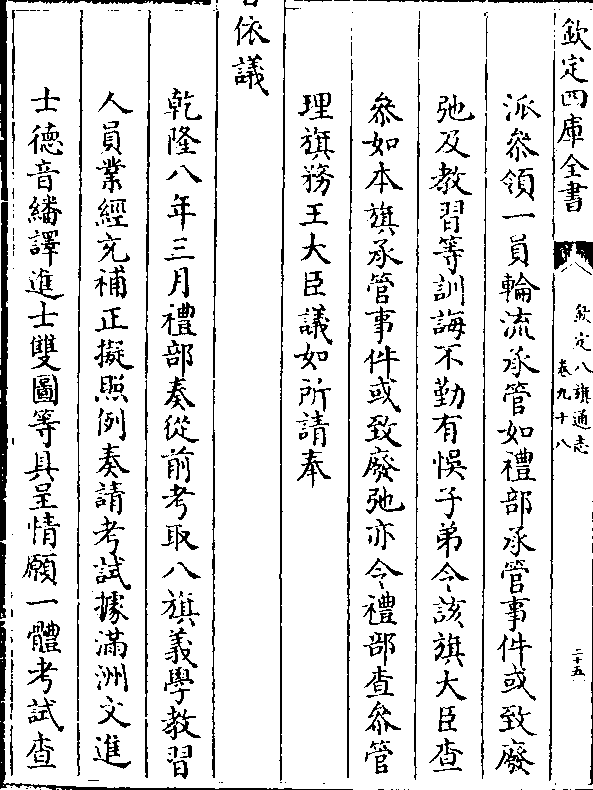 欽定四庫全書
欽定八旗通志
卷九十八
二十五
派叅領一員輪流承管如禮部承管事件或致廢
弛及教習等訓誨不勤有悞子弟令該旗大臣查
叅如本旗承管事件或致廢弛亦令禮部查叅管
理旗務王大臣議如所請奉
旨依議
乾隆八年三月禮部奏從前考取八旗義學教習
人員業經充補正擬照例奏請考試據滿洲文進
士德音繙譯進士雙圖等具呈情願一體考試查